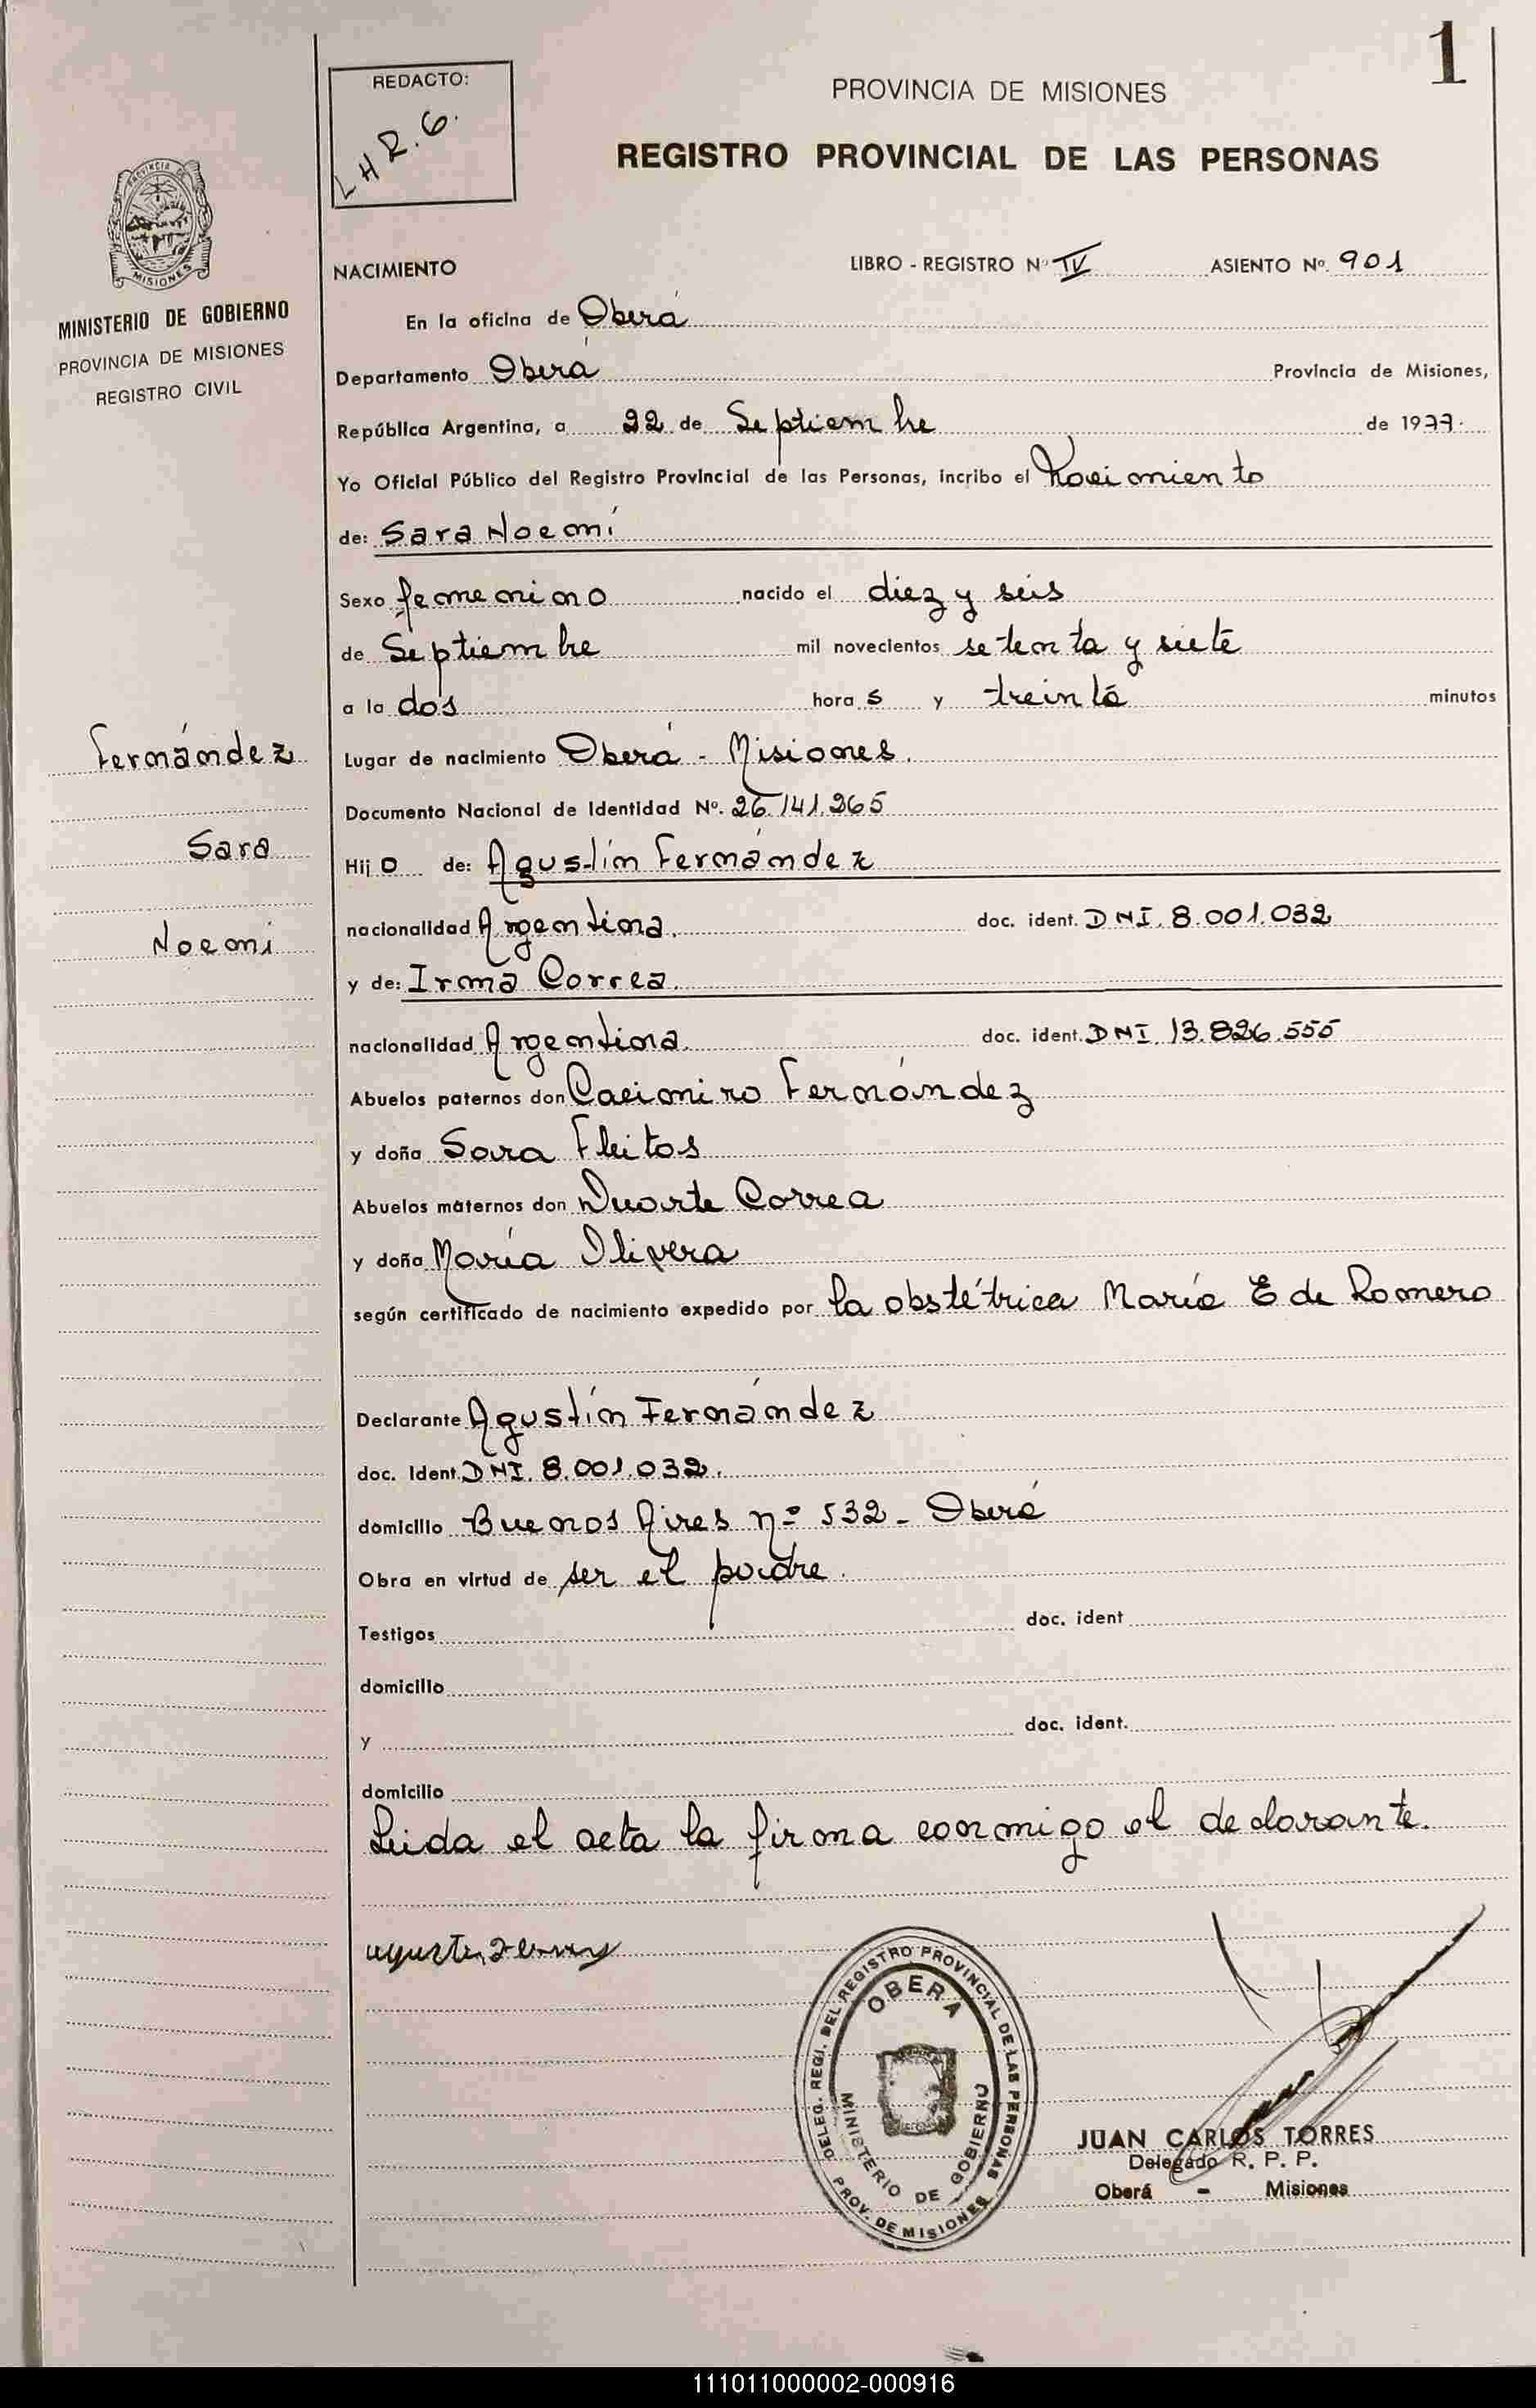 1
REDACTO:
L H R. G.
PROVINCIA DE MISIONES
REGISTRO PROVINCIAL DE LAS PERSONAS
PROVINCIA DE
MISIONES
MINISTERIO DE GOBIERNO
PROVINCIA DE MISIONES
REGISTRO CIVIL
NACIMIENTO LIBRO - REGISTRO Nº IV ASIENTO Nº. 901
En la oficina de Oberá
Departamento Oberá Provincia de Misiones,
República Argentina, a 22 de Septiembre de 1977.
Yo Oficial Público del Registro Provincial de las Personas, incribo el Nacimiento
de: Sara Noemí
Sexo femenino nacido el diez y seis
de Septiembre mil novecientos setenta y siete
a la dos hora s y treinta minutos
Fernández
Sara
Noemi
Lugar de nacimiento Oberá - Misiones.
Documento Nacional de Identidad Nº. 26.141.265
Hij o de: Agustín Fernández
nacionalidad Argentina. doc. ident. DNI. 8.001.032
y de: Irma Correa.
nacionalidad Argentina. doc. ident. DNI. 13.826.555
Abuelos paternos don Casimiro Fernández
y doña Sara Fleitas
Abuelos maternos don Duarte Correa
y doña María Olivera
según certificado de nacimiento expedido por la obstétrica María E de Romero
Declarante Agustín Fernández
doc. Ident. DNI. 8.001.032.
domicilio Buenos Aires nº 532 - Oberá
Obra en virtud de ser el padre.
Testigos doc. ident
domicilio
y doc. ident.
domicilio
Leida el acta la firma conmigo el declarante.
DELEG. REGI. DEL REGISTRO PROVINCIAL DE LAS PERSONAS
OBERA
MINISTERIO DE GOBIERNO
PROV. DE MISIONES
JUAN CARLOS TORRES
Delegado R. P. P.
Oberá - Misiones
111011000002-000916